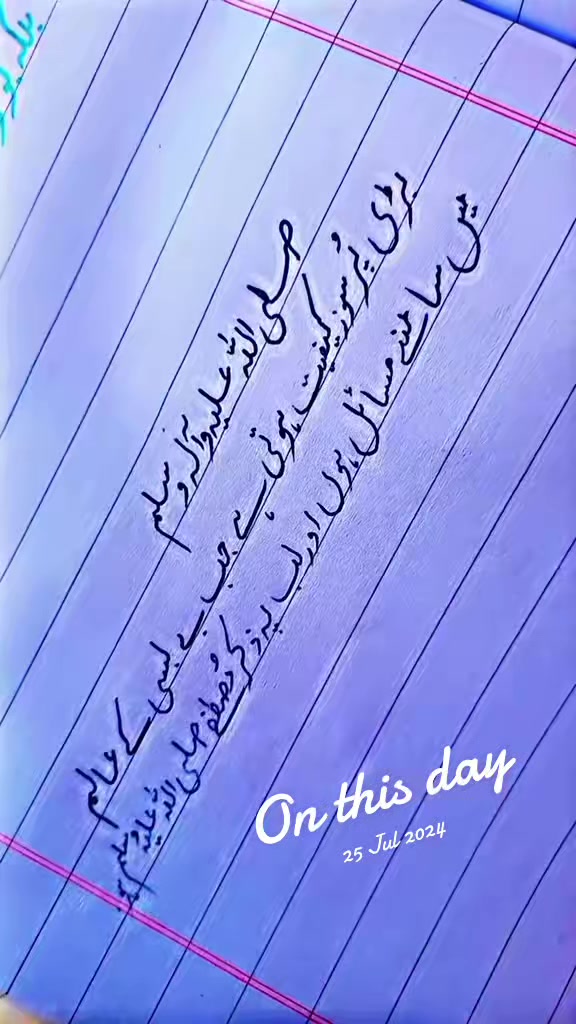 صلی اللہ علیہ وآلہ وسلم
بڑی پُرسوز کیفیت ہوتی ہے جب بے بسی کے عالم
میں سامنے مسائل ہوں اور لب پہ ذکرِ مُصطفٰی صلی اللہ علیہ وسلم ہو
On this day
25 Jul 2024